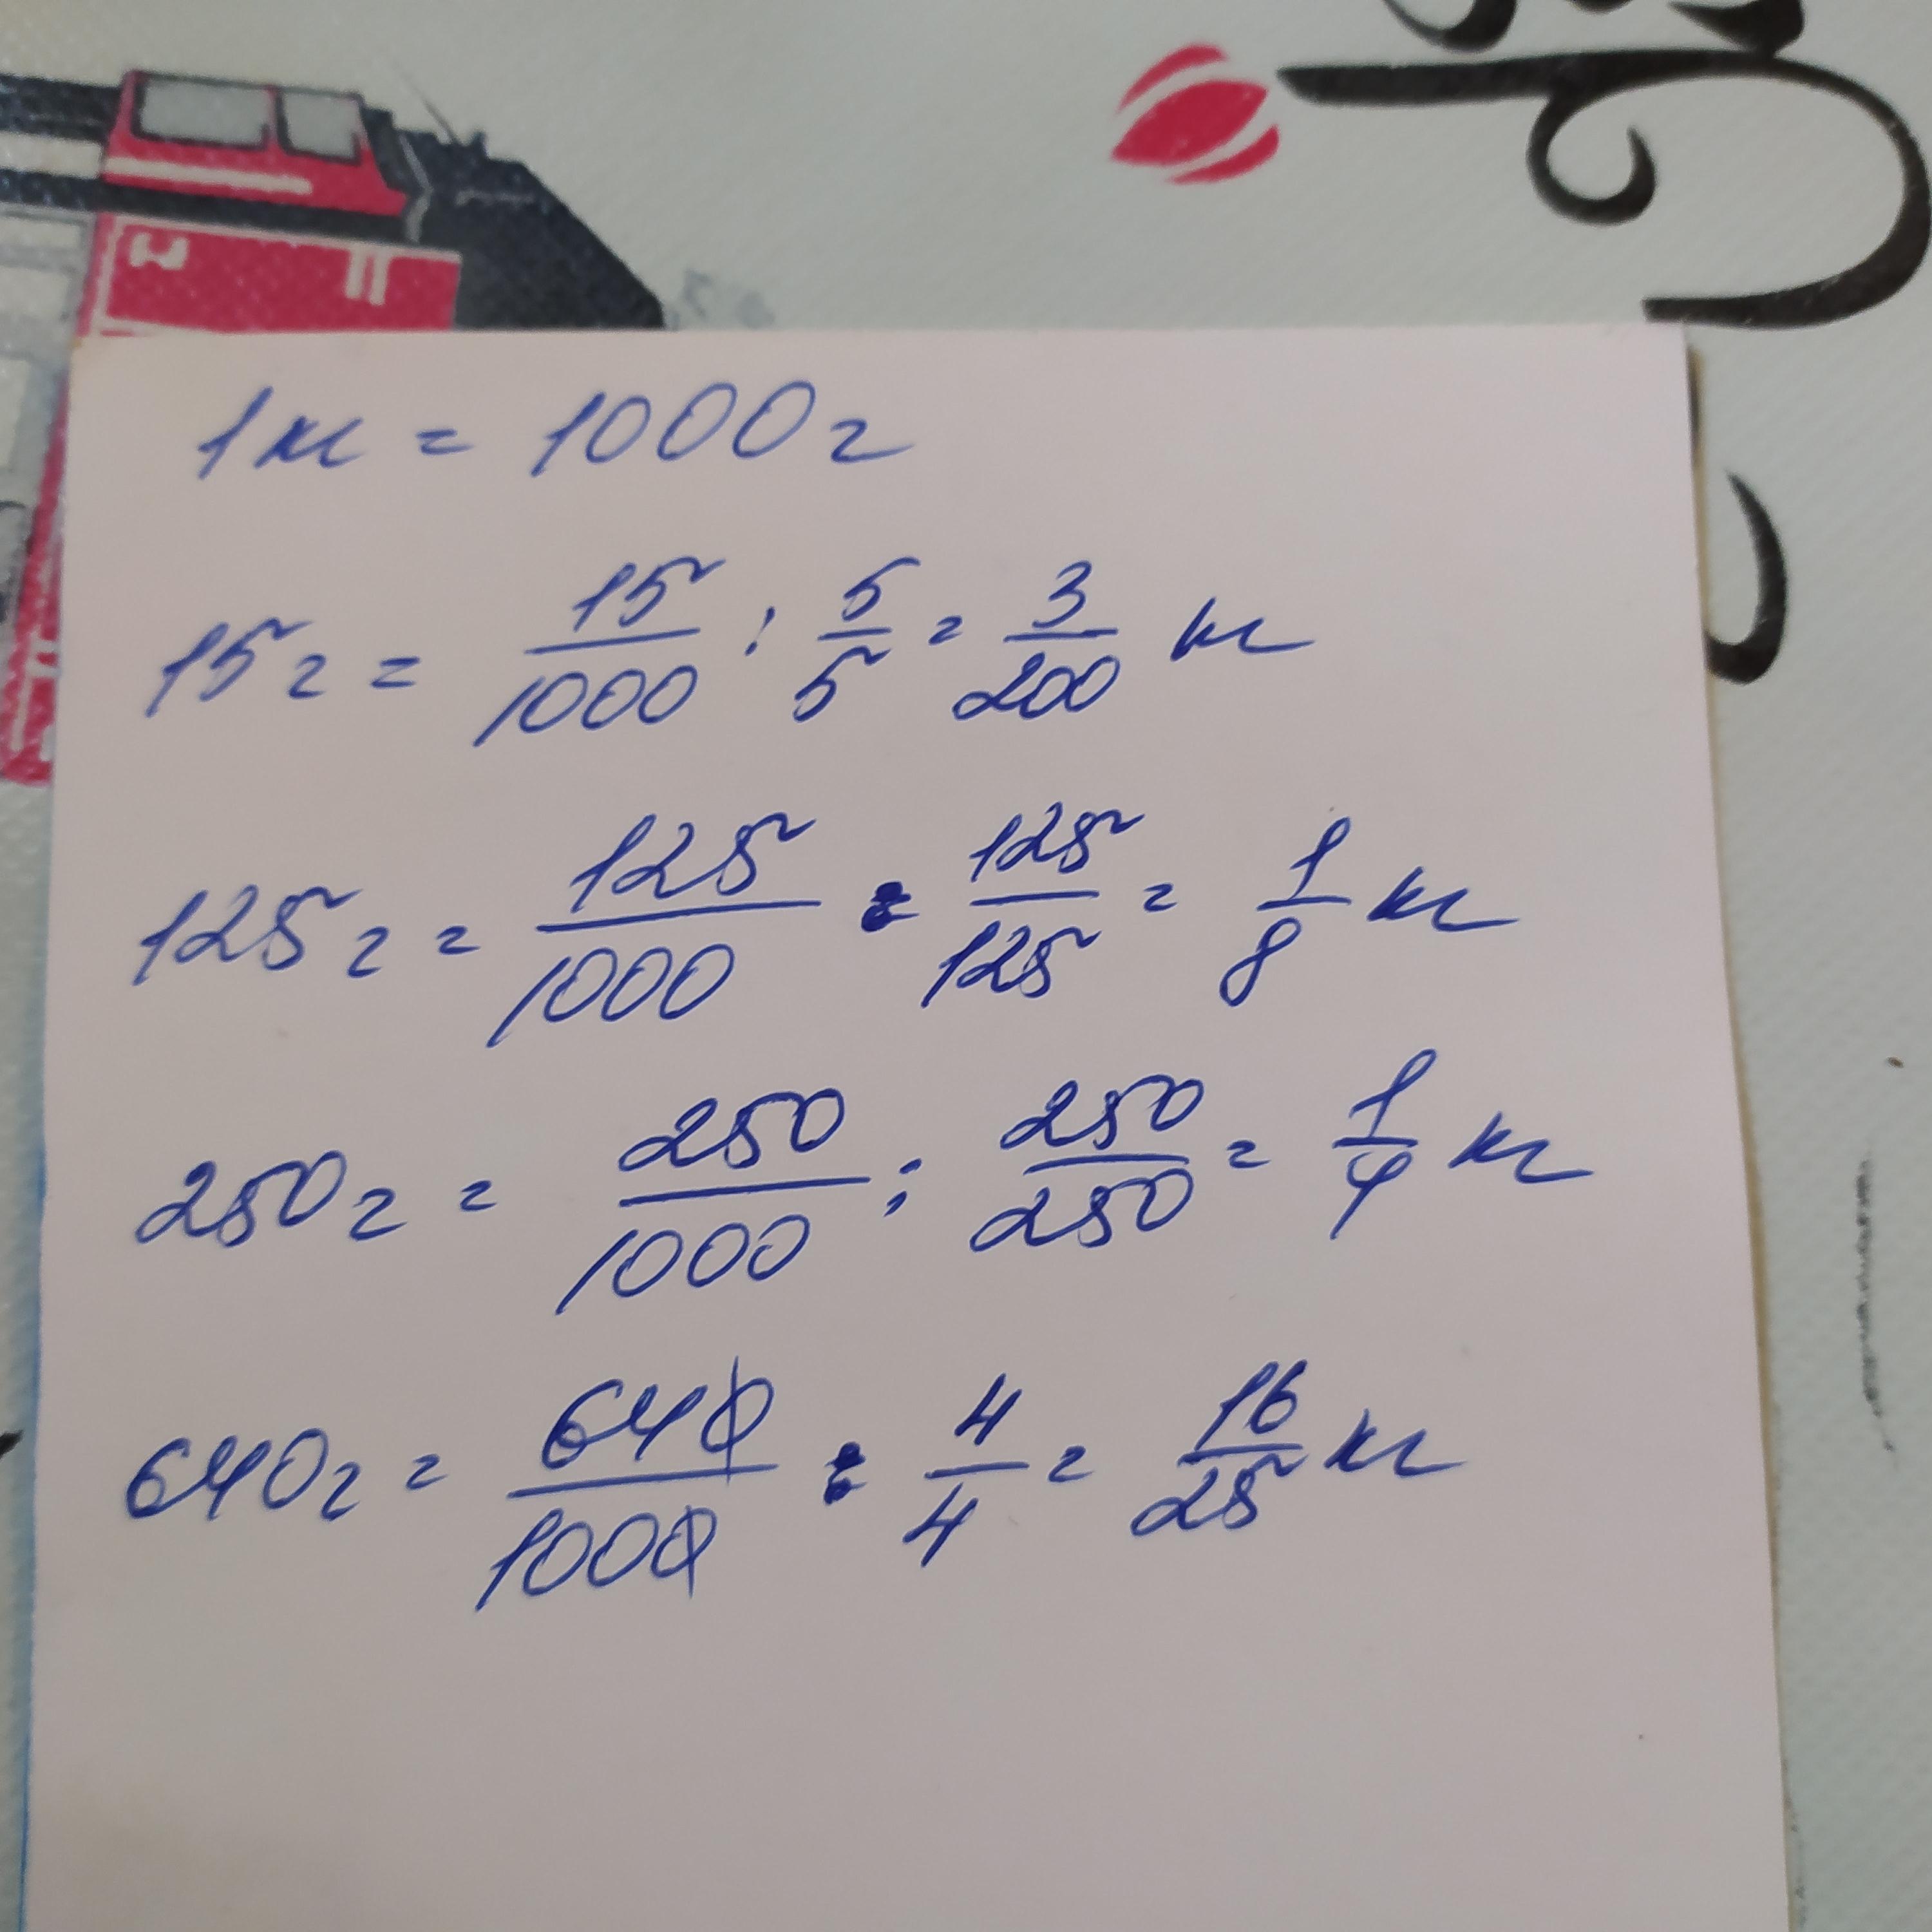 1 кг = 1000 г
15 г = 15/1000 : 5/5 = 3/200 кг
125 г = 125/1000 : 125/125 = 1/8 кг
250 г = 250/1000 : 250/250 = 1/4 кг
640 г = 640/1000 : 4/4 = 16/25 кг